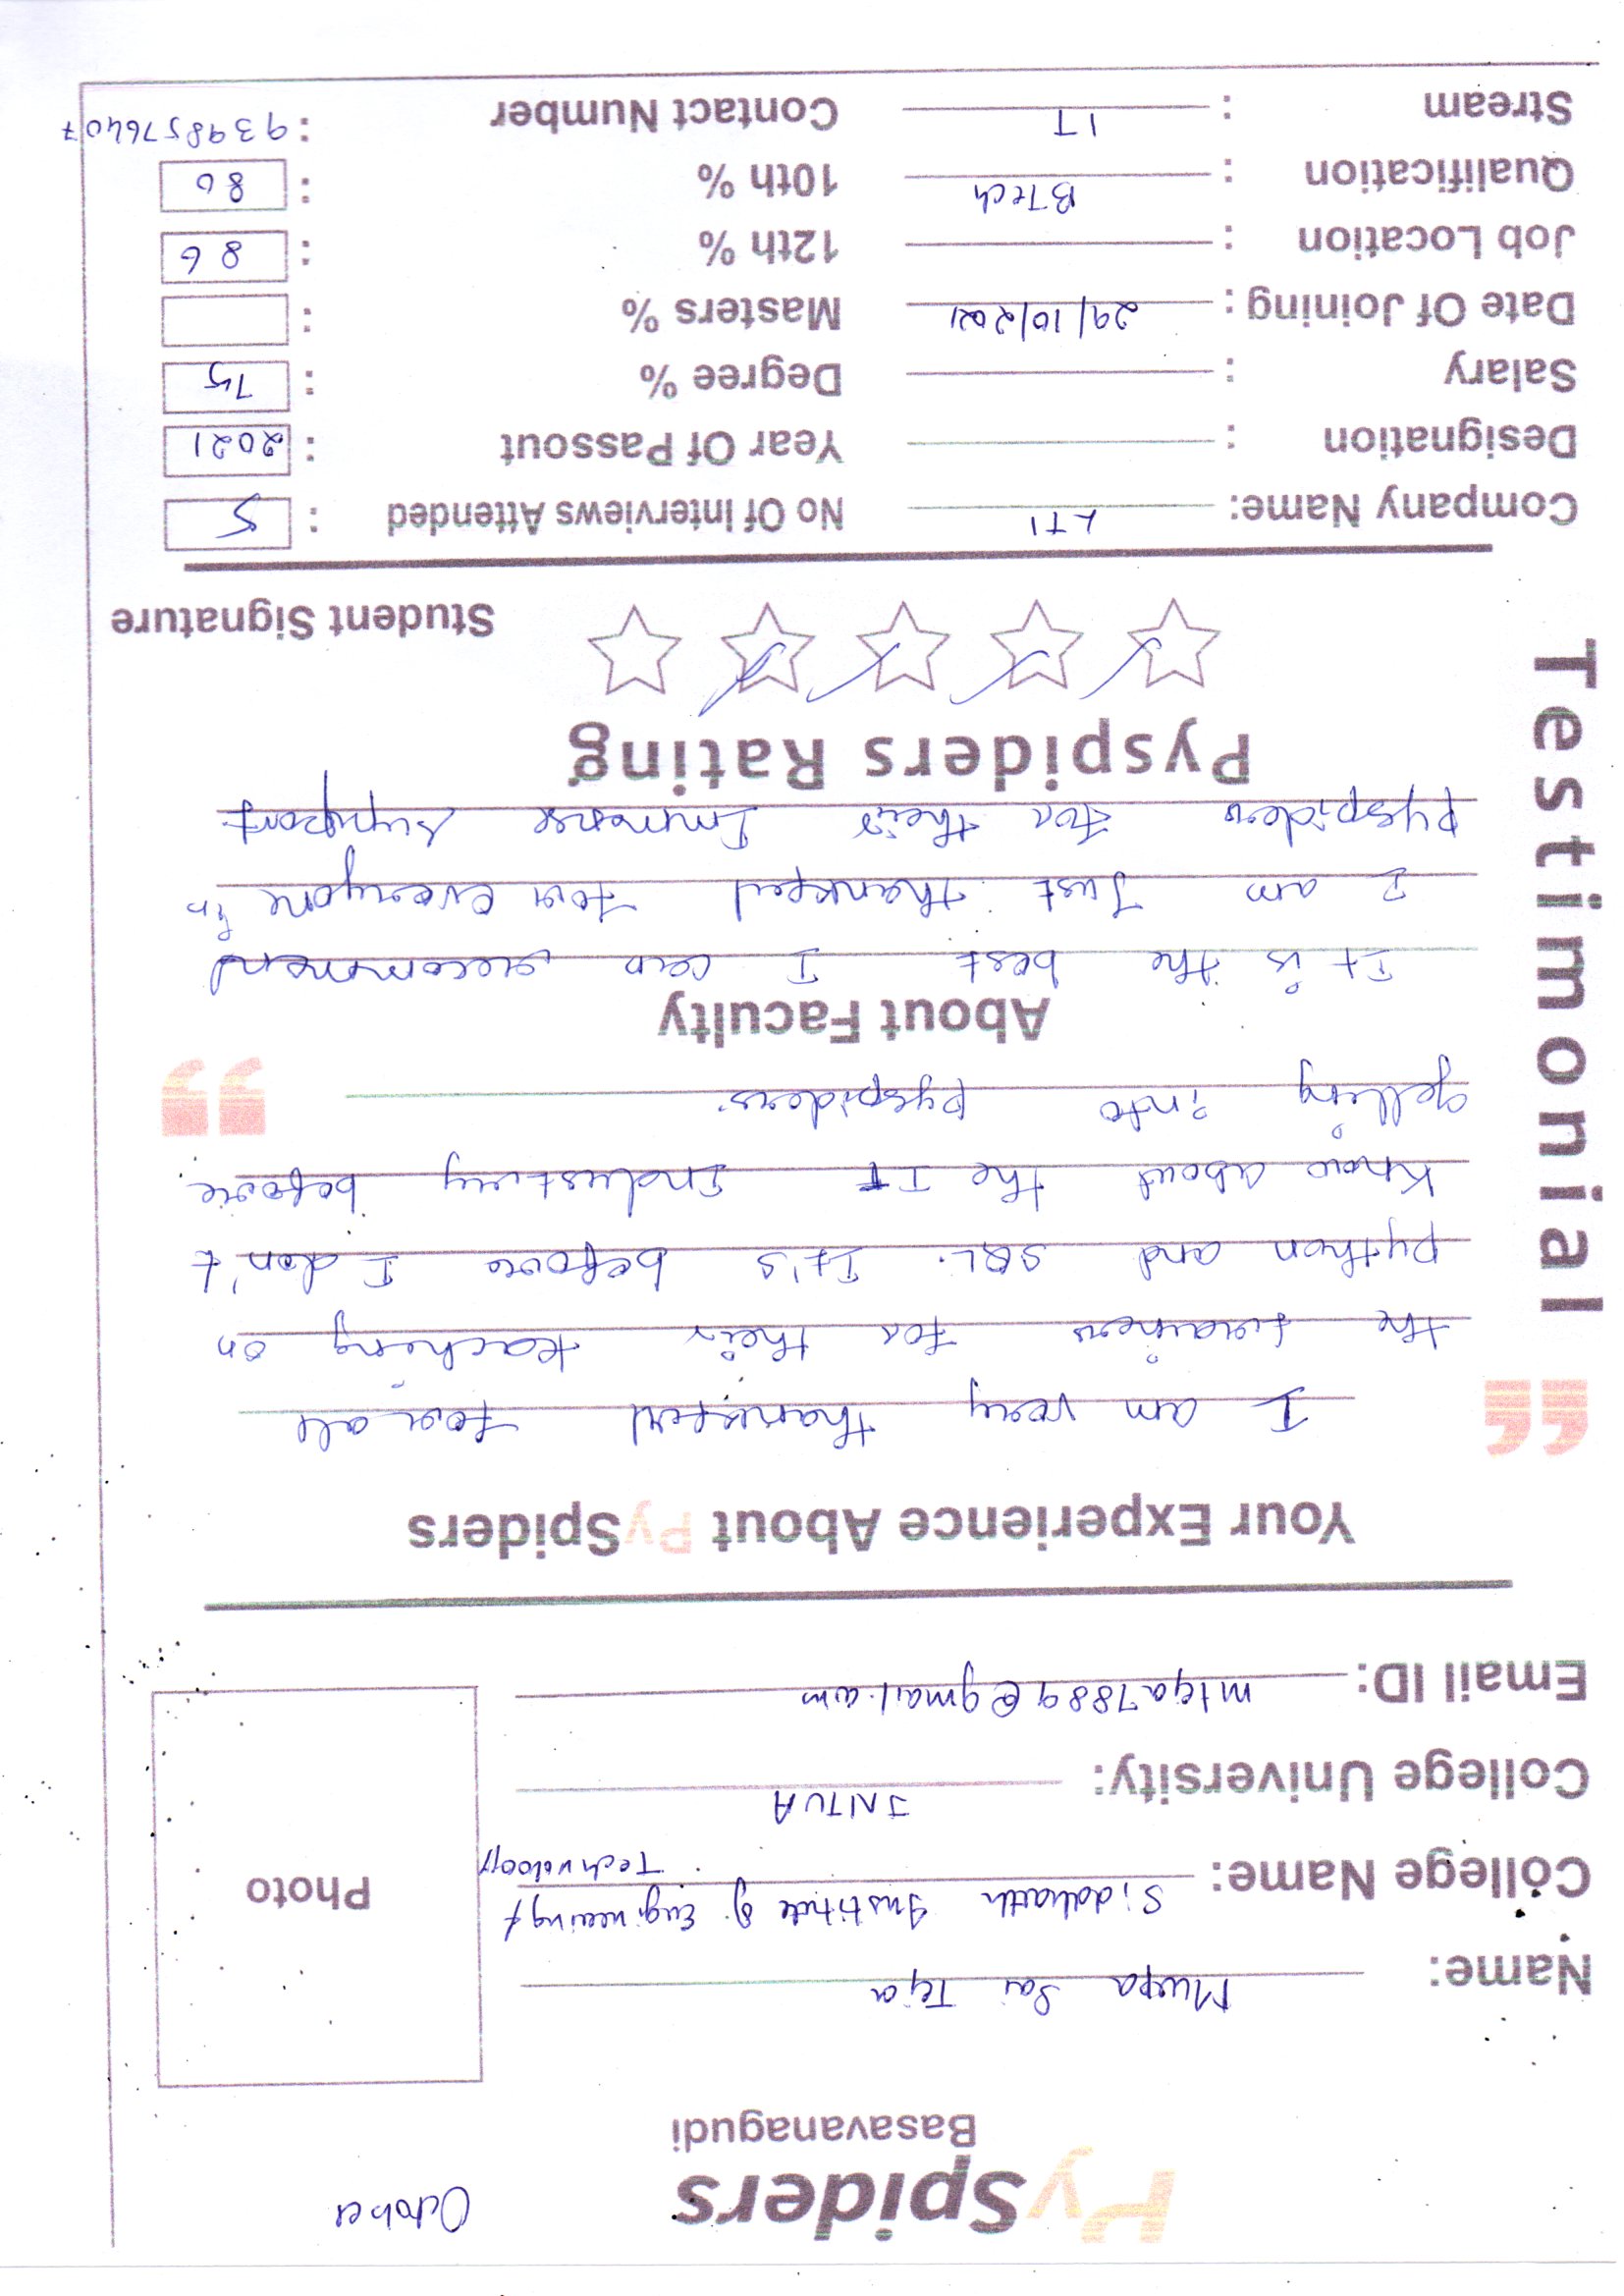 October
PySpiders
Basavanagudi
Name: Muppa Sai Teja
Photo
College Name: Siddharth Institute of Engineering &
Technology
College University: JNTUA
Email ID: mteja7889@gmail.com
Your Experience About PySpiders
I am very thankful for all
the trainers for their teaching on
python and SQL. It's before I don't
Know about the IT Industry before
getting into pyspiders.
Testimonial
About Faculty
It is the best I can recommend
I am Just thankful for everyone in
pyspiders for their Immense support
Pyspiders Rating
Student Signature
Company Name: LTI No Of Interviews Attended : 5
Designation : Year Of Passout : 2021
Salary : Degree % : 75
Date Of Joining : 29/10/2021 Masters % :
Job Location : 12th % : 86
Qualification : BTech 10th % : 80
Stream : IT Contact Number : 9398576407